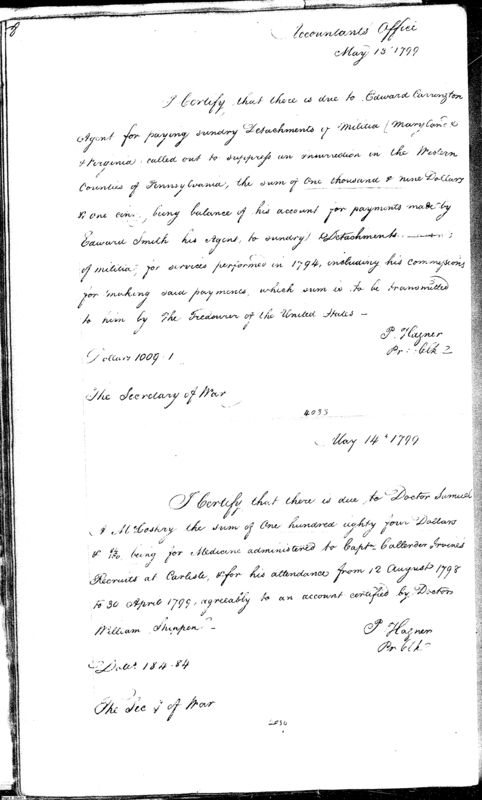 Accountants Office
May 13th 1799
I Certify that there is due to Edward Carrington
Agent for paying sundry Detachments of Militia (Maryland &
Virginia called out to suppress an insurrection in the Western
Counties of Pennsylvania, the sum of One thousand & nine Dollars
& one cent, being balance of his account for payments made by
Edward Smith his Agent, to sundry Detachments
of militia, for services performed in 1794, including his commissions
for making said payments, which sum is to be transmitted
to him by The Treasurer of the United States —
P. Hagner
Pr: Clk
Dollars 1009.1
The Secretary of War
4033
May 14th 1799
I Certify that there is due to Doctor Samuel
A McCoskry the sum of One hundred eighty four Dollars
& 84/100 being for Medicine administered to Captn Callender Irvine's
Recruits at Carlisle, & for his attendance from 12 August 1798
to 30 April 1799, agreeably to an account certified by Doctor
William Shippen
P Hagner
Pr Clk
Dolls 184.84
The Secy of War